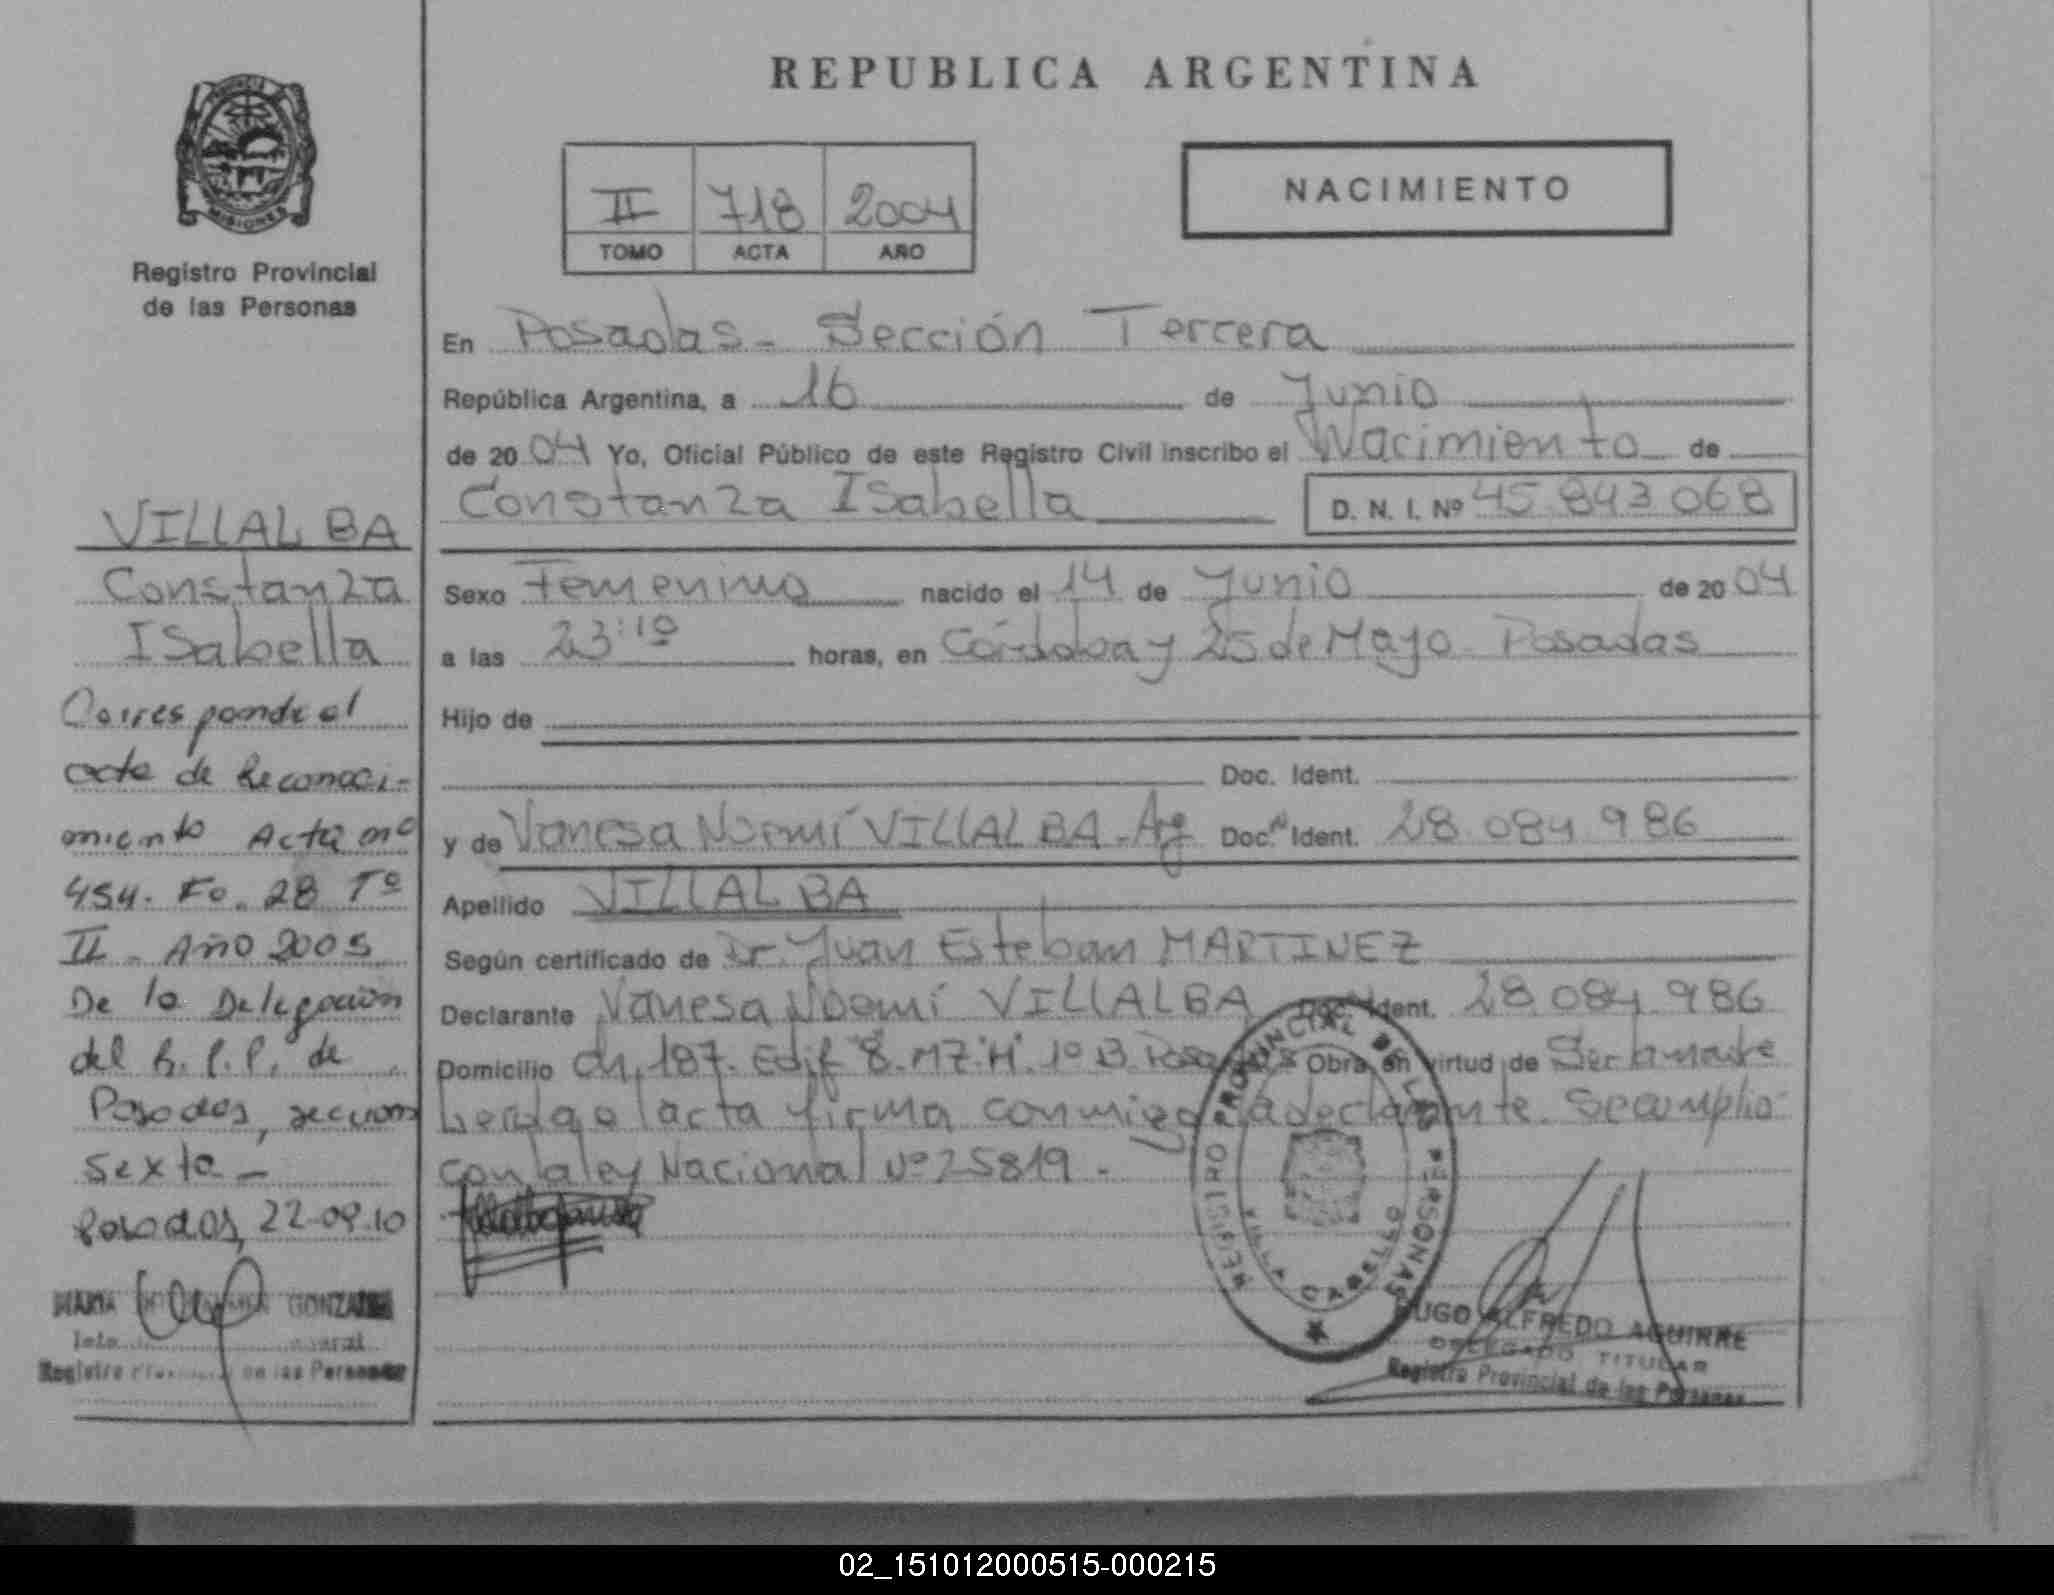 REPUBLICA ARGENTINA
MISIONES
Registro Provincial
de las Personas
II 718 2004
TOMO ACTA AÑO
NACIMIENTO
En Posadas - Sección Tercera
República Argentina, a 16 de Junio
de 2004 Yo, Oficial Público de este Registro Civil inscribo el Nacimiento de
Constanza Isabella D. N. I. Nº 45.843.068
Sexo Femenino nacido el 14 de Junio de 2004
a las 23:10 horas, en Córdoba y 25 de Mayo - Posadas
Hijo de
Doc. Ident.
y de Vanesa Noemí VILLALBA - Arg Doc. Ident. 28.084.986
Apellido VILLALBA
Según certificado de Dr. Juan Esteban MARTINEZ
Declarante Vanesa Noemí VILLALBA Doc. Ident. 28.084.986
Domicilio Ch. 187. Edif "8". MZ "H" 1º B. Posadas Obra en virtud de Ser la madre
acta firma conmigo la declarante. Se cumplio
con la ley Nacional Nº 25819.-
VILLALBA
Constanza
Isabella
Corresponde al
acta de Reconoci-
miento Acta nº
454. Fo. 28 Tº
II - Año 2005
De la Delegación
del R.P.P. de
Posadas, sección
Sexta -
Posadas, 22-09-10
MARIA GONZALEZ
Registro Provincial de las Personas
REGISTRO PROVINCIAL DE LAS PERSONAS
VILLA CABELLO
HUGO ALFREDO AGUIRRE
DELEGADO TITULAR
Registro Provincial de las Personas
02_151012000515-000215